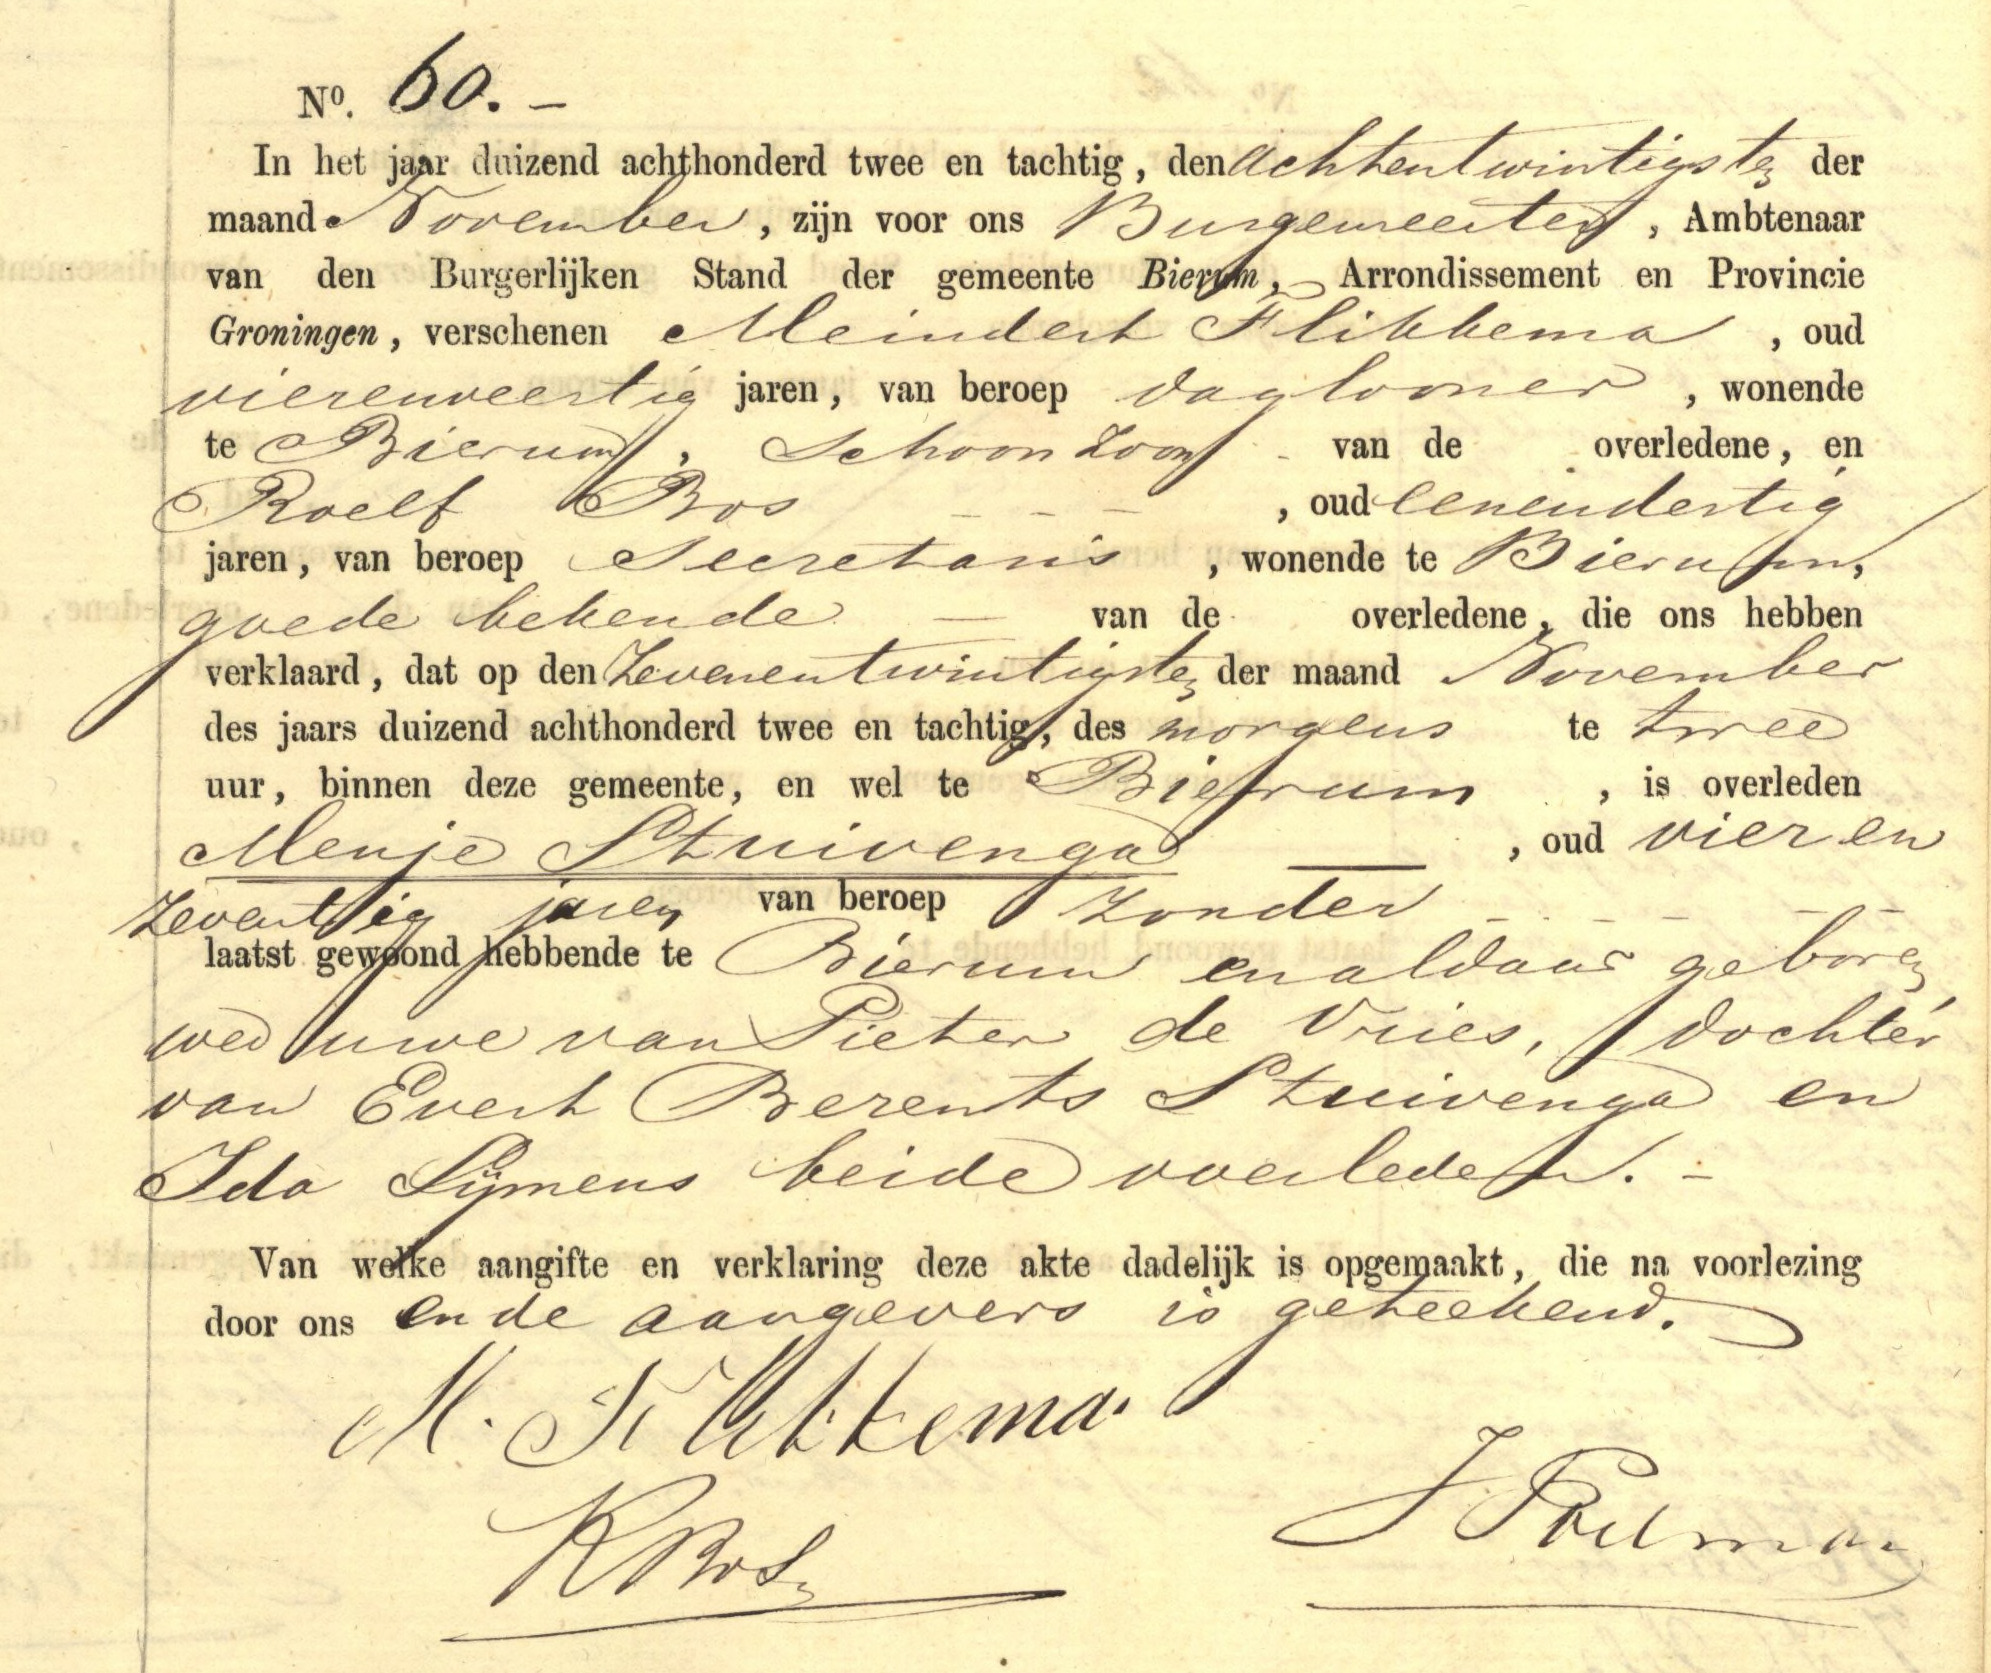 No. 60. –
In het jaar duizend achthonderd twee en tachtig, den achtentwintigsten der
maand November, zijn voor ons Burgemeester, Ambtenaar
van den Burgerlijken Stand der gemeente Bierum, Arrondissement en Provincie
Groningen, verschenen Meindert Flikkema, oud
vierenveertig jaren, van beroep dagloner, wonende
te Bierum, schoonzoon van de overledene, en
Roelf Bos – – –, oud eenendertig
jaren, van beroep Secretaris, wonende te Bierum,
goede bekende – van de overledene, die ons hebben
verklaard, dat op den zevenentwintigsten der maand November
des jaars duizend achthonderd twee en tachtig, des morgens te twee
uur, binnen deze gemeente, en wel te Bierum, is overleden
Menje Stuivenga –, oud vier en
zeventig jaren van beroep zonder – – – – – –
laatst gewoond hebbende te Bierum en aldaar geboren
weduwe van Pieter de Vries, dochter
van Evert Berents Stuivenga en
Ida Sijmens beide overleden. –
Van welke aangifte en verklaring deze akte dadelijk is opgemaakt, die na voorlezing
door ons en de aangevers is geteekend.
M. Flikkema.
R Bos